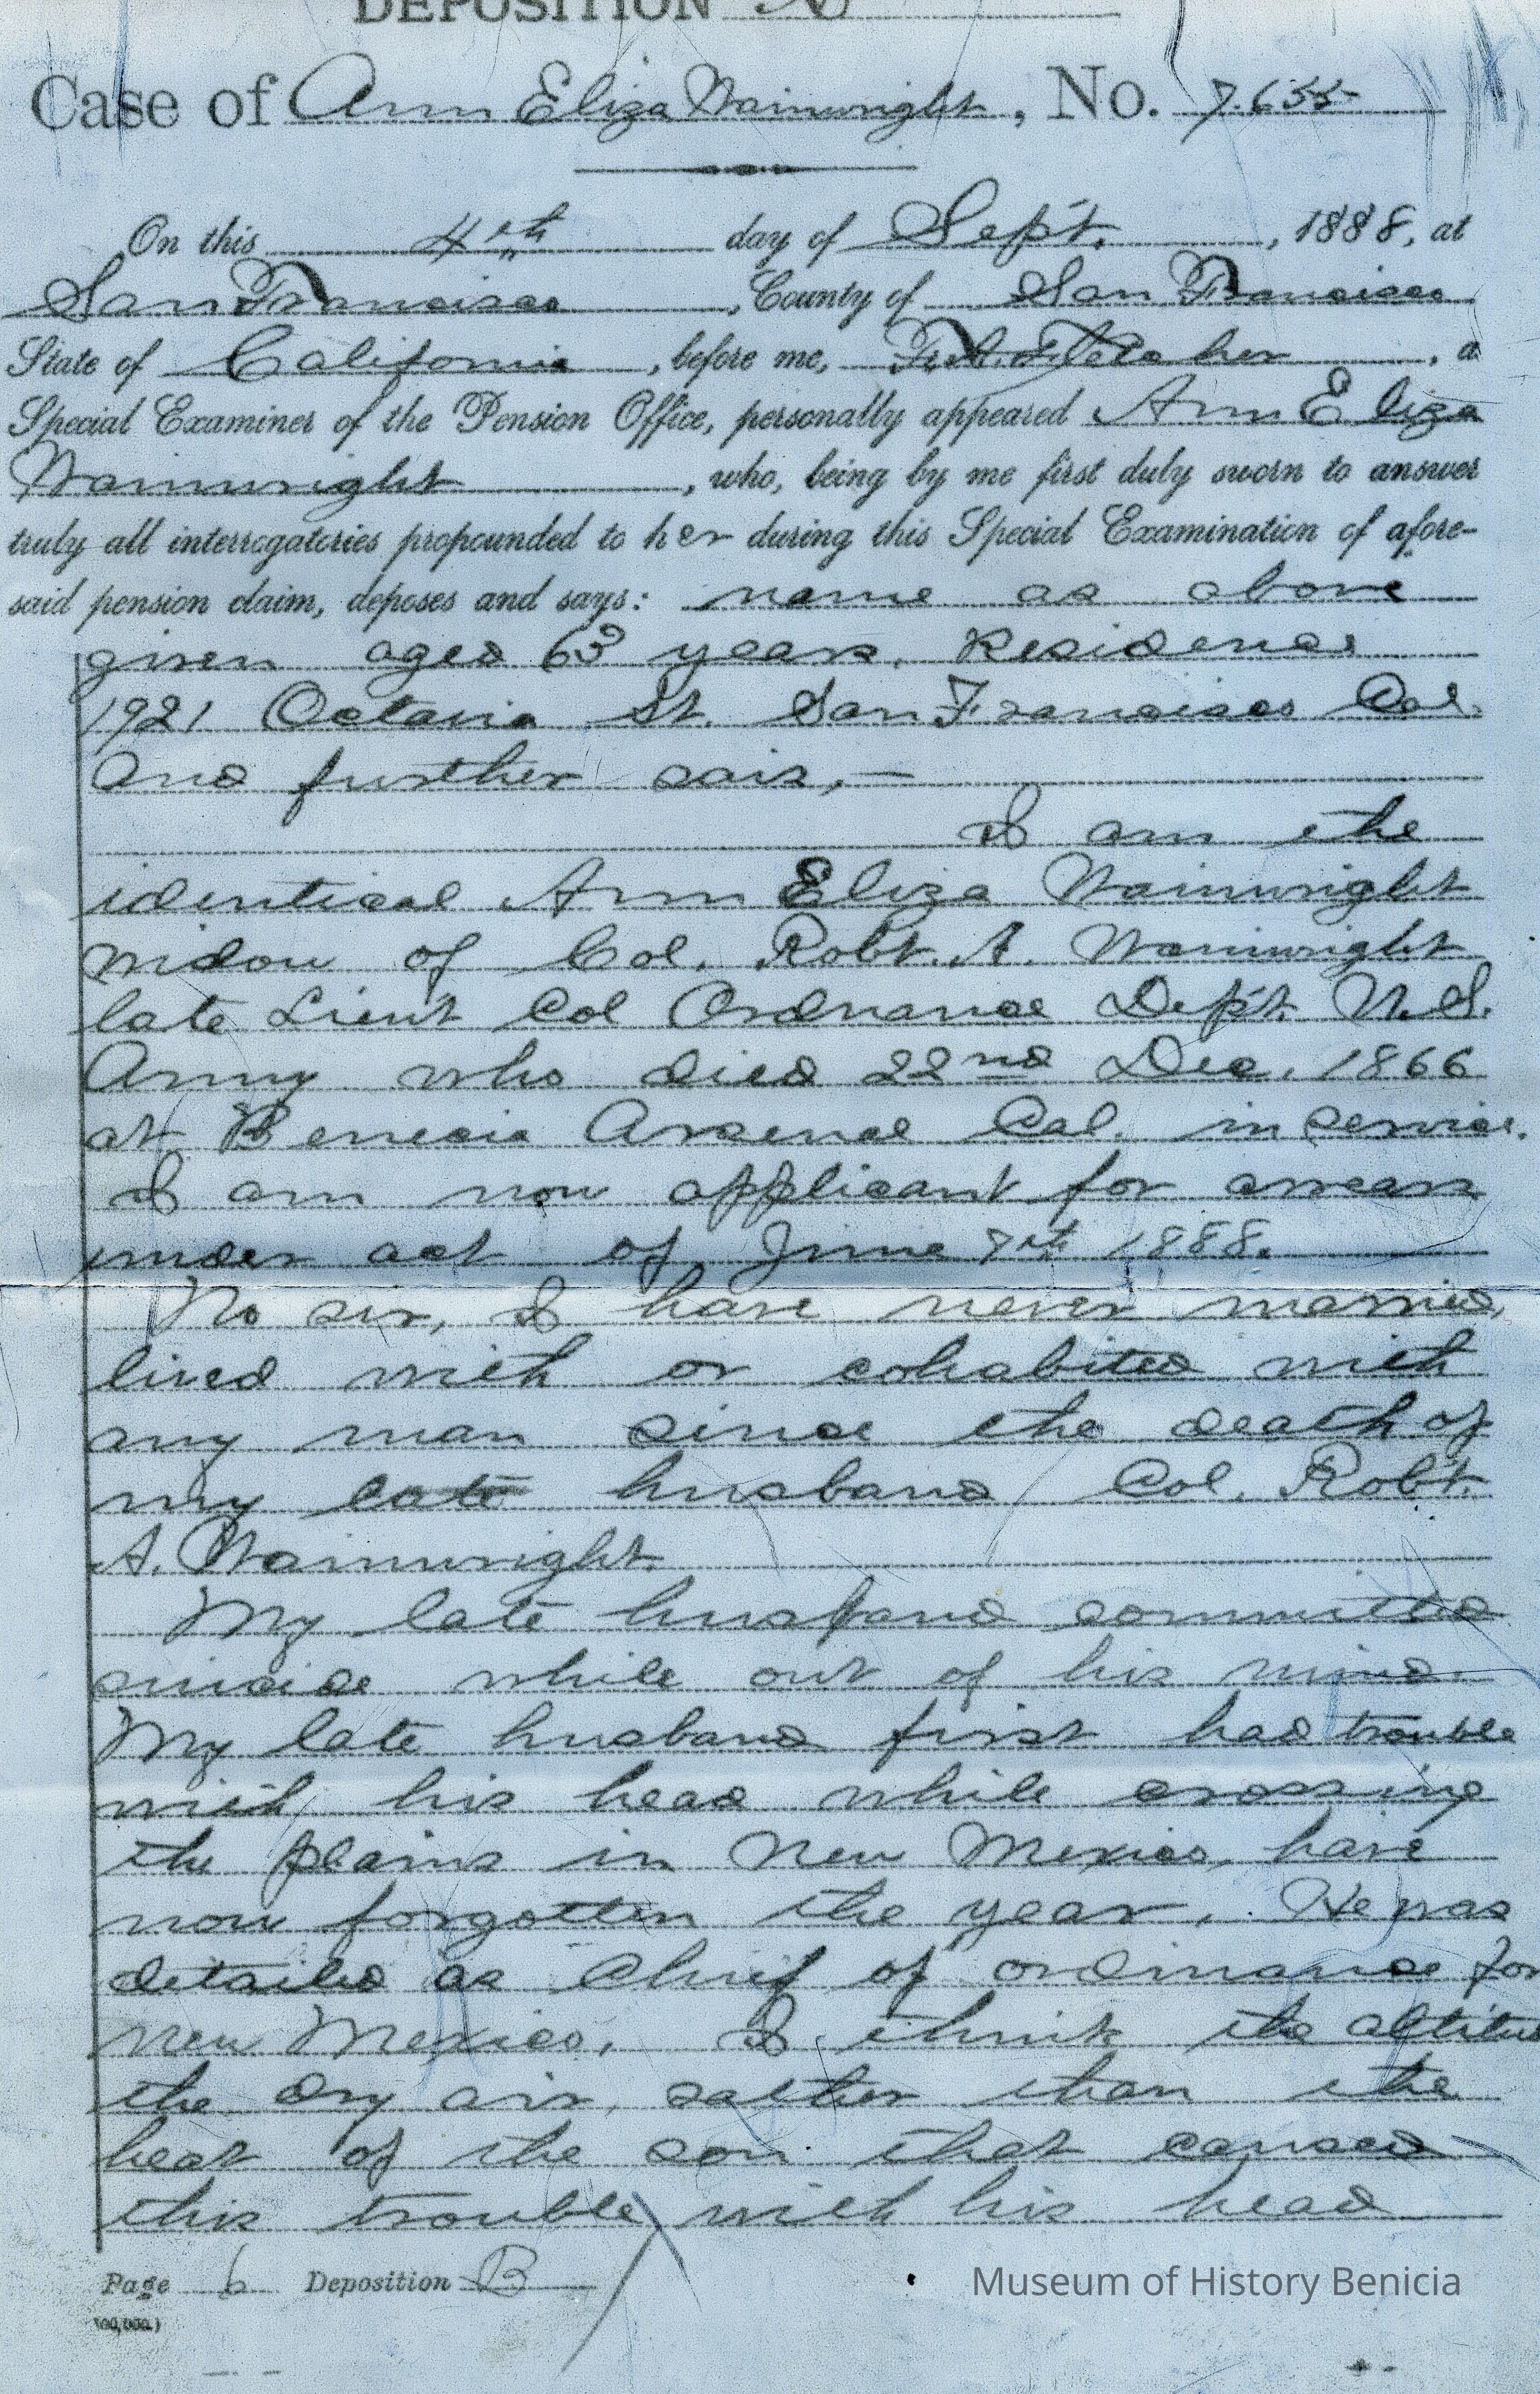 DEPOSITION B
Case of Ann Eliza Wainwright, No. 7.655
On this 4th day of Sept., 1888, at
San Francisco, County of San Francisco
State of California, before me, Fletcher, a
Special Examiner of the Pension Office, personally appeared Ann Eliza
Wainwright, who, being by me first duly sworn to answer
truly all interrogatories propounded to her during this Special Examination of afore-
said pension claim, deposes and says: name as above
given aged 63 years. Residence
1921 Octavia St. San Francisco Cal.
And further sais,—
I am the
identical Ann Eliza Wainwright
widow of Col. Robt. A. Wainwright
late Lieut Col Ordnance Dep't U.S.
Army who died 22nd Dec. 1866
at Benecia Arsenal Cal. in service.
I am now applicant for arrears
under act of June 7th 1888.
No sir, I have never married,
lived with or cohabited with
any man since the death of
my late husband Col. Robt.
A. Wainwright.
My late husband committed
suicide while out of his mind.
My late husband first had trouble
with his head while crossing
the plains in New Mexico, have
now forgotten the year. He was
detailed as Chief of ordinance for
New Mexico. I think the altitud
the dry air, rather than the
heat of the son that caused
this trouble with his head
Page 6 Deposition B
Museum of History Benicia